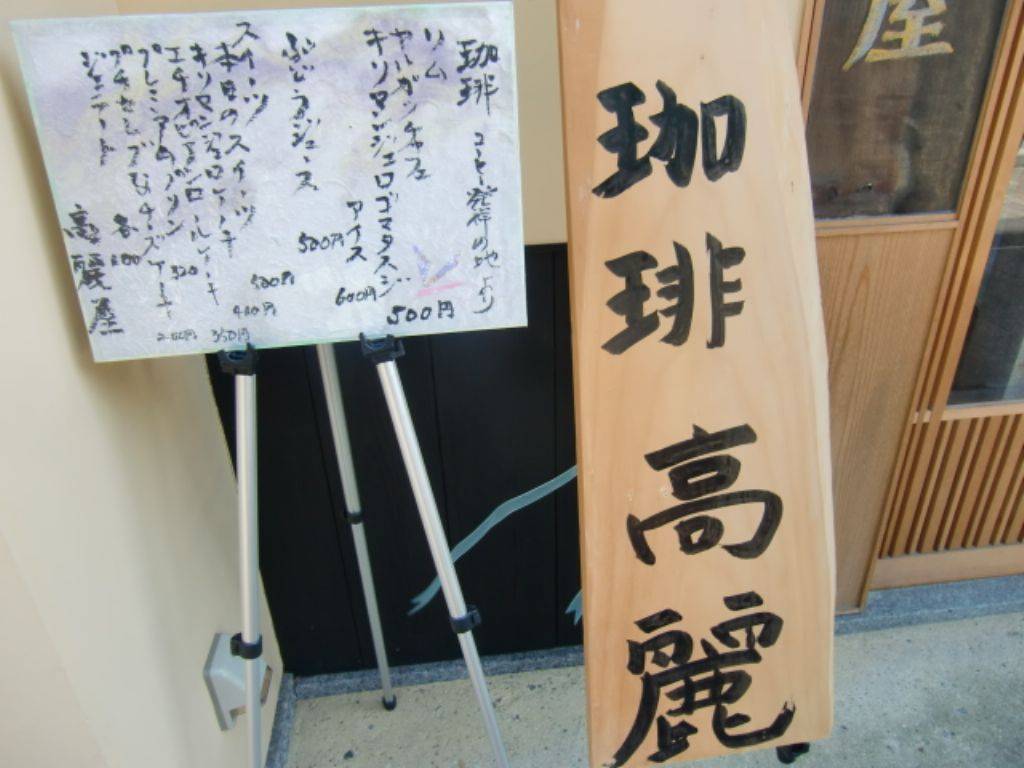 珈琲 コーヒー発祥の地より
リム
ヤルガッチャフェ
キリマンジェロゴマタスジ 500円
アイス 600円
ぶどうがジュース 500円
スイーツ
本日のスイーツ 500円
キリマンジェロケーキ 400円
エチオピアンロールケーキ 350円
プレミアムプリン 320
プチせんぶむチーズケーキ 250円
ジェラート 各 200
高麗屋
珈琲 高麗
屋